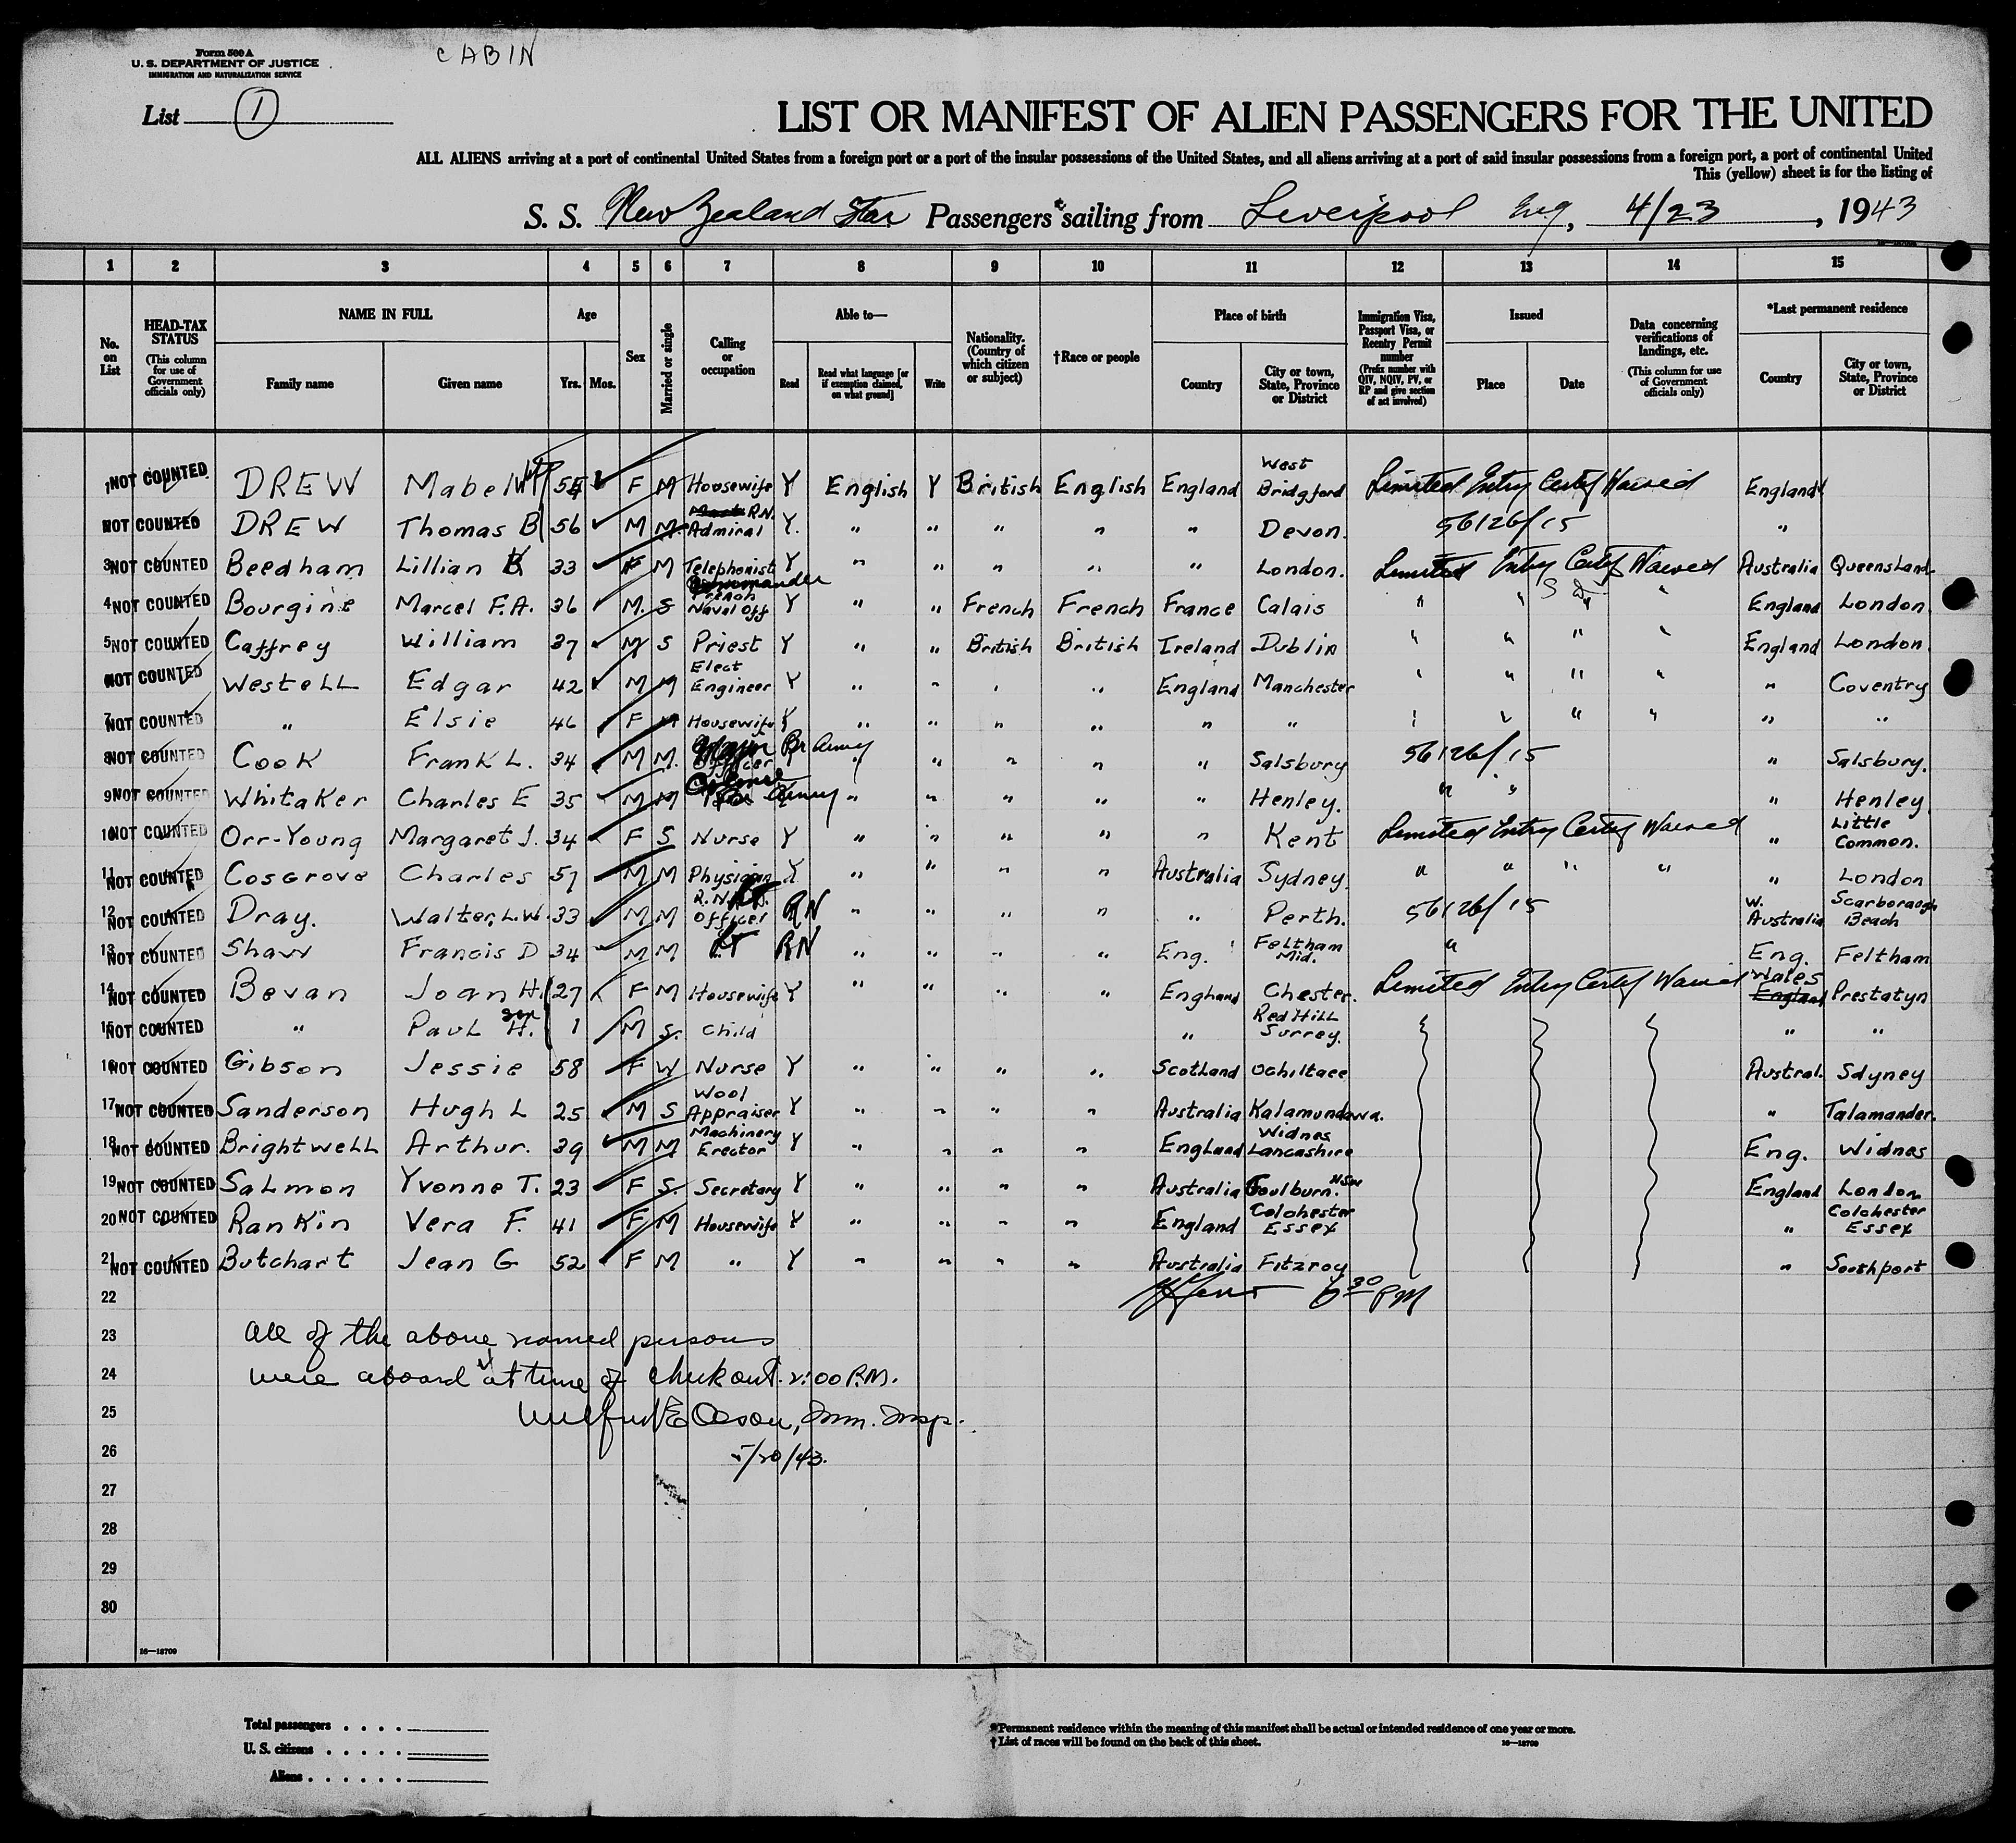 Form 500 A
U. S. DEPARTMENT OF JUSTICE
IMMIGRATION AND NATURALIZATION SERVICE
CABIN
List 1
LIST OR MANIFEST OF ALIEN PASSENGERS FOR THE UNITED
ALL ALIENS arriving at a port of continental United States from a foreign port or a port of the insular possessions of the United States, and all aliens arriving at a port of said insular possessions from a foreign port, a port of continental United
This (yellow) sheet is for the listing of
S. S. New Zealand Star Passengers sailing from Liverpool Eng, 4/23, 1943
1 2 3 4 5 6 7 8 9 10 11 12 13 14 15
No. on List
HEAD-TAX STATUS (This column for use of Government officials only)
NAME IN FULL
Family name Given name
Age Yrs. Mos.
Sex
Married or single
Calling or occupation
Able to—
Read
Read what language [or if exemption claimed, on what ground]
Write
Nationality. (Country of which citizen or subject)
†Race or people
Place of birth
Country
City or town, State, Province or District
Immigration Visa, Passport Visa, or Reentry Permit number (Prefix number with QIV, NQIV, PV, or RP and give section of act involved)
Issued
Place Date
Data concerning verifications of landings, etc. (This column for use of Government officials only)
*Last permanent residence
Country
City or town, State, Province or District
1 NOT COUNTED DREW Mabel F M Housewife Y English Y British English England West Bridgford Limited Entry Certf Waived England
NOT COUNTED DREW Thomas B 56 M M R.N. Admiral Y. " " " " " Devon. 56126/15 "
3 NOT COUNTED Beedham Lillian 33 F M Telephonist Y " " " " " London. Limited Entry Certf Waived Australia Queensland
4 NOT COUNTED Bourgine Marcel F.A. 36 M. S French Naval Off Y " " French French France Calais " " " " England London
5 NOT COUNTED Caffrey William 37 M S Priest Y " " British British Ireland Dublin " " " " England London
NOT COUNTED Westell Edgar 42 M M Elect Engineer Y " " " " England Manchester " " " " " Coventry
7 NOT COUNTED " Elsie 46 F M Housewife Y " " " " " " " " " " " "
8 NOT COUNTED Cook Frank L. 34 M M. Officer Br Army " " " " " Salsbury 56126/15 " Salsbury.
9 NOT COUNTED Whitaker Charles E 35 M M Colonel Army " " " " " Henley. " " " Henley
10 NOT COUNTED Orr-Young Margaret J. 34 F S Nurse Y " " " " " Kent Limited Entry Certf Waived " Little Common.
11 NOT COUNTED Cosgrove Charles 57 M M Physician Y " " " " Australia Sydney. " " " " " London
12 NOT COUNTED Dray. Walter, L.W. 33 M M Officer RN " " " " " Perth. 56126/15 W. Australia Scarborough Beach
13 NOT COUNTED Shaw Francis D 34 M M LT RN " " " " Eng. Feltham Mid. " Eng. Feltham
14 NOT COUNTED Bevan Joan H. 27 F M Housewife Y " " " " England Chester. Limited Entry Certf Waived Wales England Prestatyn
15 NOT COUNTED " Paul H. son 1 M S. Child " Red Hill Surrey. " "
16 NOT COUNTED Gibson Jessie 58 F W Nurse Y " " " " Scotland Ochiltree Austral. Sdyney
17 NOT COUNTED Sanderson Hugh L 25 M S Wool Appraiser Y " " " " Australia Kalamunda W.A. " Talamander.
18 NOT COUNTED Brightwell Arthur. 39 M M Machinery Erector Y " " " " England Widnes Lancashire Eng. Widnes
19 NOT COUNTED Salmon Yvonne T. 23 F S. Secretary Y " " " " Australia Goulburn. NSW England London
20 NOT COUNTED Rankin Vera F. 41 F M Housewife Y " " " " England Colchester Essex " Colchester Essex
21 NOT COUNTED Butchart Jean G 52 F M " Y " " " " Australia Fitzroy " Southport
22 6 30 PM
23 All of the above named persons
24 were aboard at time of check out. 2:00 P.M.
25 Wilfred E Olson, Imm. Insp.
26 5/20/43.
27
28
29
30
16—18709
Total passengers
U. S. citizens
Aliens
*Permanent residence within the meaning of this manifest shall be actual or intended residence of one year or more.
†List of races will be found on the back of this sheet.
16—18709